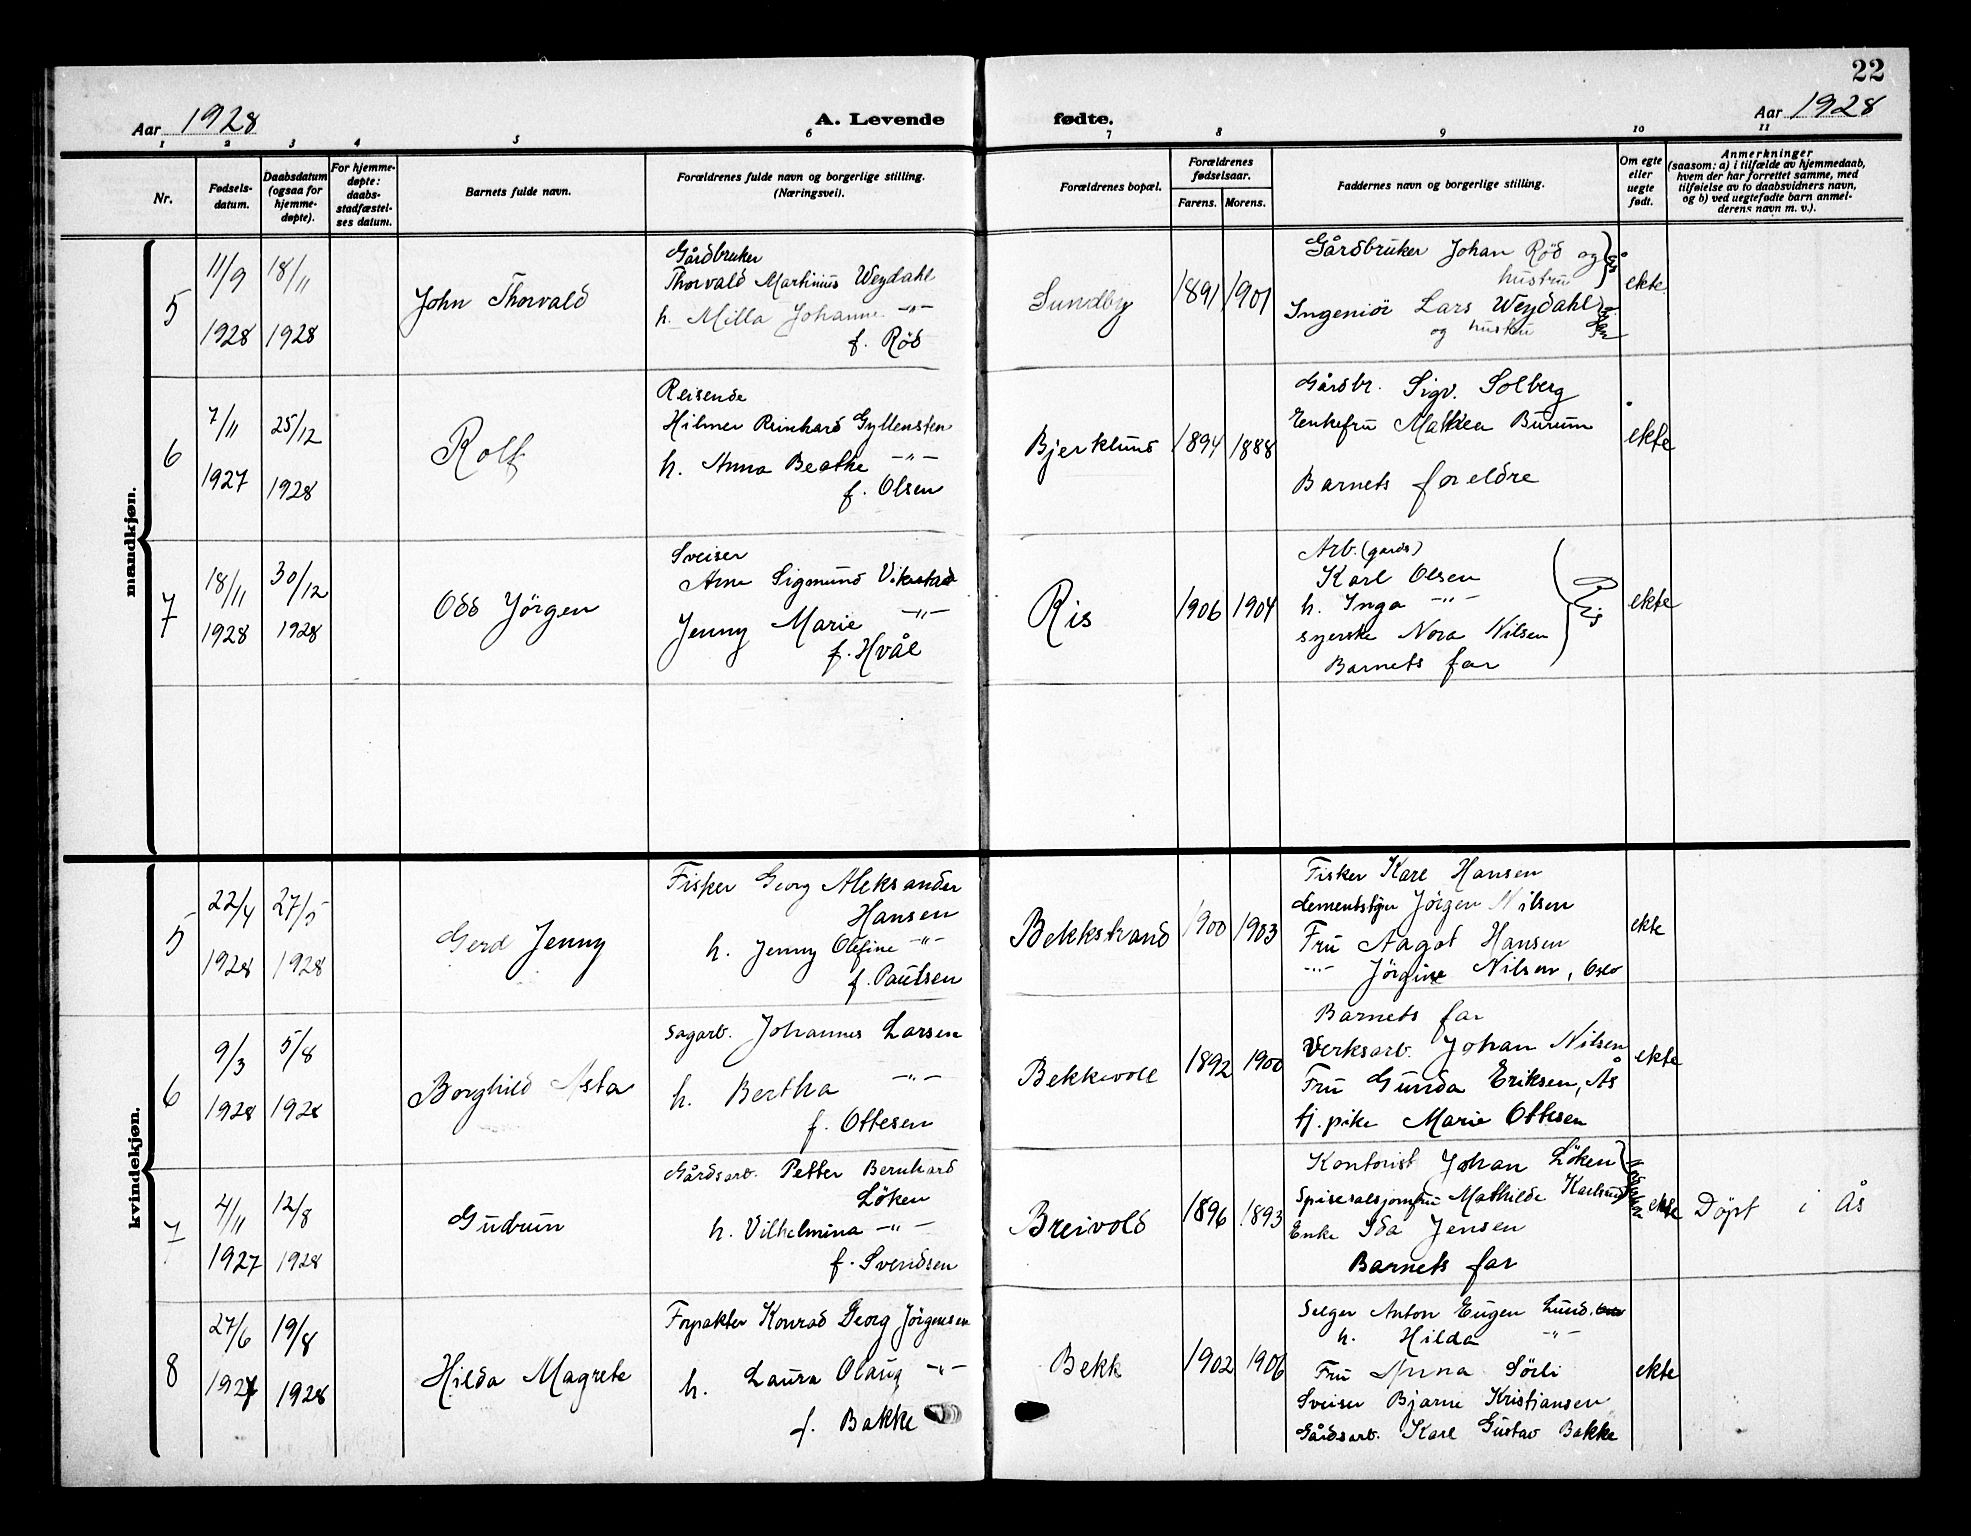 22
Aar 1928
A. Levende fødte.
Aar 1928
1 2 3 4 5 6 7 8 9 10 11
Nr.
Fødsels-
datum.
Daabsdatum
(ogsaa for
hjemme-
døpte).
For hjemme-
døpte:
daabs-
stadfæstel-
ses datum.
Barnets fulde navn.
Forældrenes fulde navn og borgerlige stilling.
(Næringsvei).
Forældrenes bopæl.
Forældrenes
fødselsaar.
Farens. Morens.
Faddernes navn og borgerlige stilling.
Om egte
eller
uegte
født.
Anmerkninger
(saasom: a) i tilfælde av hjemmedaab,
hvem der har forrettet samme, med
tilføielse av to daabsvidners navn,
og b) ved uegtefødte barn anmel-
derens navn m. v.).
mandkjøn.
5
11/9
1928
18/11
1928
John Thorvald
Gårdbruker
Thorvald Martinius Weydahl
h. Milla Johanne -"-
f. Röd
Sundby
1891 1901
Gårdbruker Johan Röd og
hustru
Ingeniör Lars Weydahl
og hustru
ekte
6
7/11
1927
25/12
1928
Rolf
Reisende
Hilmer Reinhard Gyllensten
h. Anna Beathe -"-
f. Olsen
Bjerklund
1894 1888
Gårdbr. Sigv. Solberg
Enkefru Mathea Burum
Barnets foreldre
ekte
7
18/11
1928
30/12
1928
Odd Jörgen
Sveiser
Arne Sigmund Vikstad
Jenny Marie -"-
f. Hvål
Ris
1906 1904
Arb. (gards)
Karl Olsen
h. Inga -"-
syerske Nora Nilsen
Barnets far
Ris
ekte
kvindekjøn.
5
22/4
1928
27/5
1928
Gerd Jenny
Fisker Georg Aleksander
Hansen
h. Jenny Olefine -"-
f. Paulsen
Bekkstrand
1900 1903
Fisker Karl Hansen
Jörgen Nilsen
Fru Aagot Hansen
-"- Jörgine Nilsen, Oslo
ekte
6
9/3
1928
5/8
1928
Borghild Asta
Sagarb. Johannes Larsen
h. Bertha -"-
f. Ottesen
Bekkevoll
1892 1900
Barnets far
Verksarb. Johan Nilsen
Fru Gunda Eriksen, Ås
tj. pike Marie Ottesen
ekte
7
4/11
1927
12/8
1928
Gudrun
Gårdsarb. Petter Bernhard
Löken
h. Vilhelmina -"-
f. Svendsen
Breivold
1896 1893
Kontorist Johan Löken
Spisesalsjomfru Mathilde Karlsrud
Enke Ida Jensen
Barnets far
ekte
Döpt i Ås
8
27/6
1927
19/8
1928
Hilda Magrete
Forpakter Konrad Georg Jörgensen
h. Laura Olaug -"-
f. Bakke
Bekk
1902 1906
Selger Anton Eugen Lund.
h. Hilda -"-
Fru Anna Sörli
Sveiser Bjarne Kristiansen
Gårdsarb. Karl Gustav Bakke
ekte